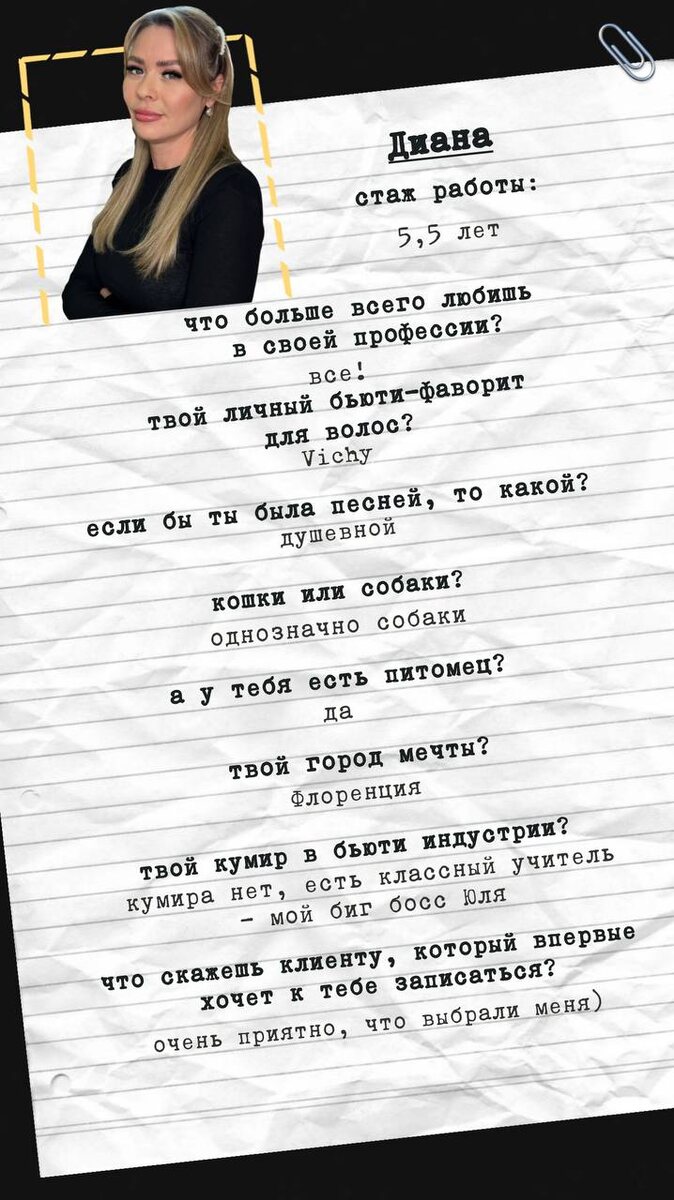 Диана
стаж работы:
5,5 лет
что больше всего любишь
в своей профессии?
все!
твой личный бьюти-фаворит
для волос?
Vichy
если бы ты была песней, то какой?
душевной
кошки или собаки?
однозначно собаки
а у тебя есть питомец?
да
твой город мечты?
Флоренция
твой кумир в бьюти индустрии?
кумира нет, есть классный учитель
- мой биг босс Юля
что скажешь клиенту, который впервые
хочет к тебе записаться?
очень приятно, что выбрали меня)